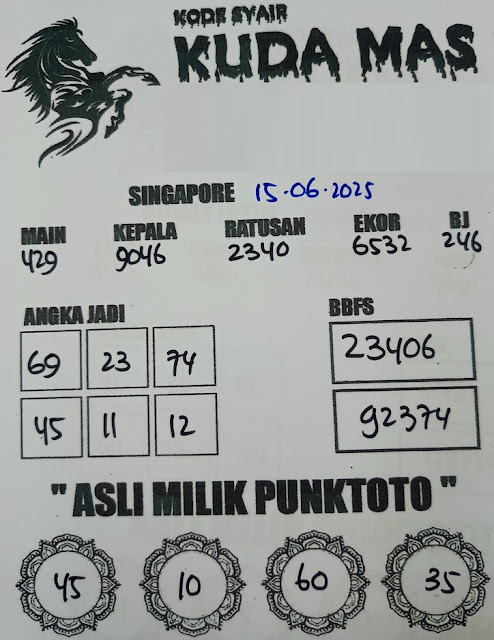 KODE SYAIR
KUDA MAS
SINGAPORE 15-06-2025
MAIN KEPALA RATUSAN EKOR BJ
429 9046 2340 6532 246
ANGKA JADI BBFS
69 23 74 23406
45 11 12 92374
" ASLI MILIK PUNKTOTO "
45 10 60 35